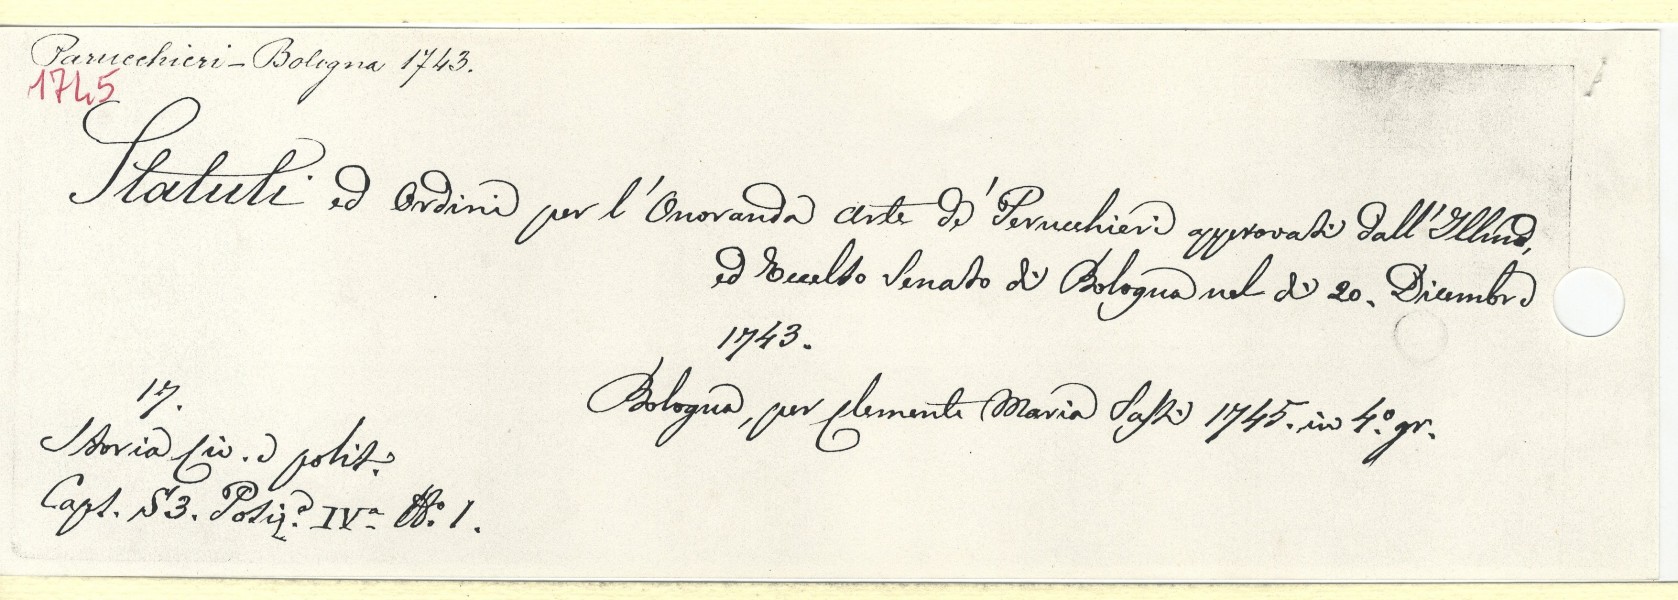 Parucchieri - Bologna 1743.
1745
Statuti ed Ordini per l'Onoranda Arte de' Perucchieri approvati dall'Illmo,
ed Eccelso Senato di Bologna nel dì 20. Dicembre
1743.
Bologna, per Clemente Maria Sassi 1745. in 4.º gr.
17.
Storia Civ. e polit.
Capt. S3. Poliz.e IVª N.º 1.